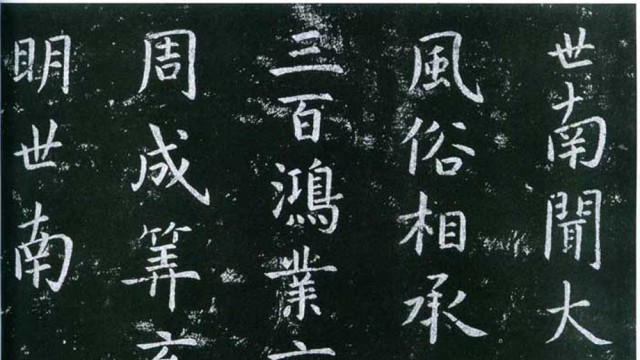 世南聞大
風俗相承
三百鴻業
周成筭
明世南